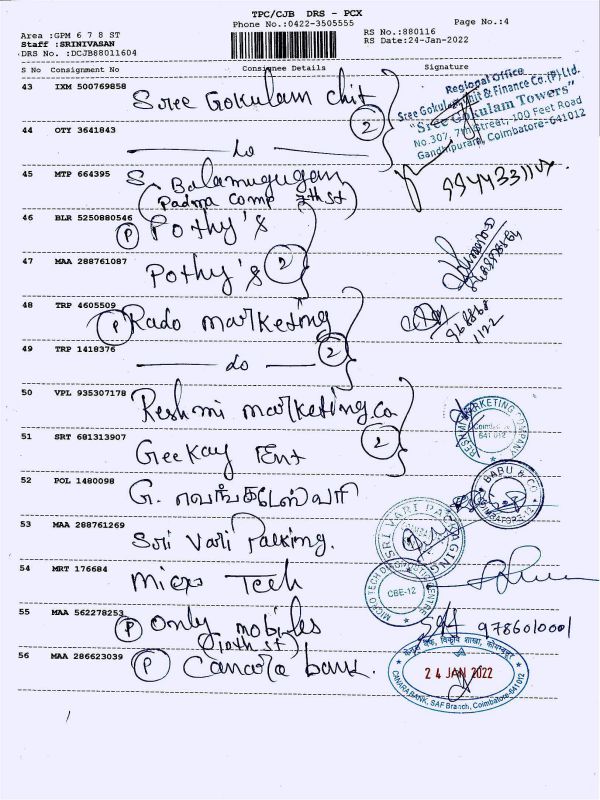 TPC/CJB DRS - PCX
Phone No.:0422-3505555
Page No.:4
Area :GPM 6 7 8 ST
RS No.:880116
Staff :SRINIVASAN
RS Date:24-Jan-2022
DRS No. :DCJB88011604
S No Consignment No Consignee Details Signature
43 IXM 500769858 Sree Gokulam Chit
Regional Office
Sree Gokulam Chit & Finance Co.(P) Ltd.
"Sree Gokulam Towers"
No.307, 7th Street, 100 Feet Road
Gandhipuram, Coimbatore-641012
2
44 OTY 3641843 do
45 MTP 664395 S. Balamurugan
(Padma Comp 7th St)
46 BLR 5250880546 P Pothy's
47 MAA 288761087 Pothy's 2
48 TRP 4605509 P Rado marketing
968868
1122
49 TRP 1418376 do 2
50 VPL 935307178 Reshmi marketing co
RESHMI MARKETING COMPANY
Coimbatore
641 012
51 SRT 681313907 GeeKay Ent 2
52 POL 1480098 G.
BABU & CO
COIMBATORE-12
53 MAA 288761269 Sri Vari Packing.
SRI VARI PACKAGING
54 MRT 176684 Micro Tech
CBE-12
55 MAA 562278253 P Only mobiles
(10th st)
9786010001
56 MAA 286623039 P Canara bank.
24 JAN 2022
CANARA BANK, SAF Branch, Coimbatore-641012